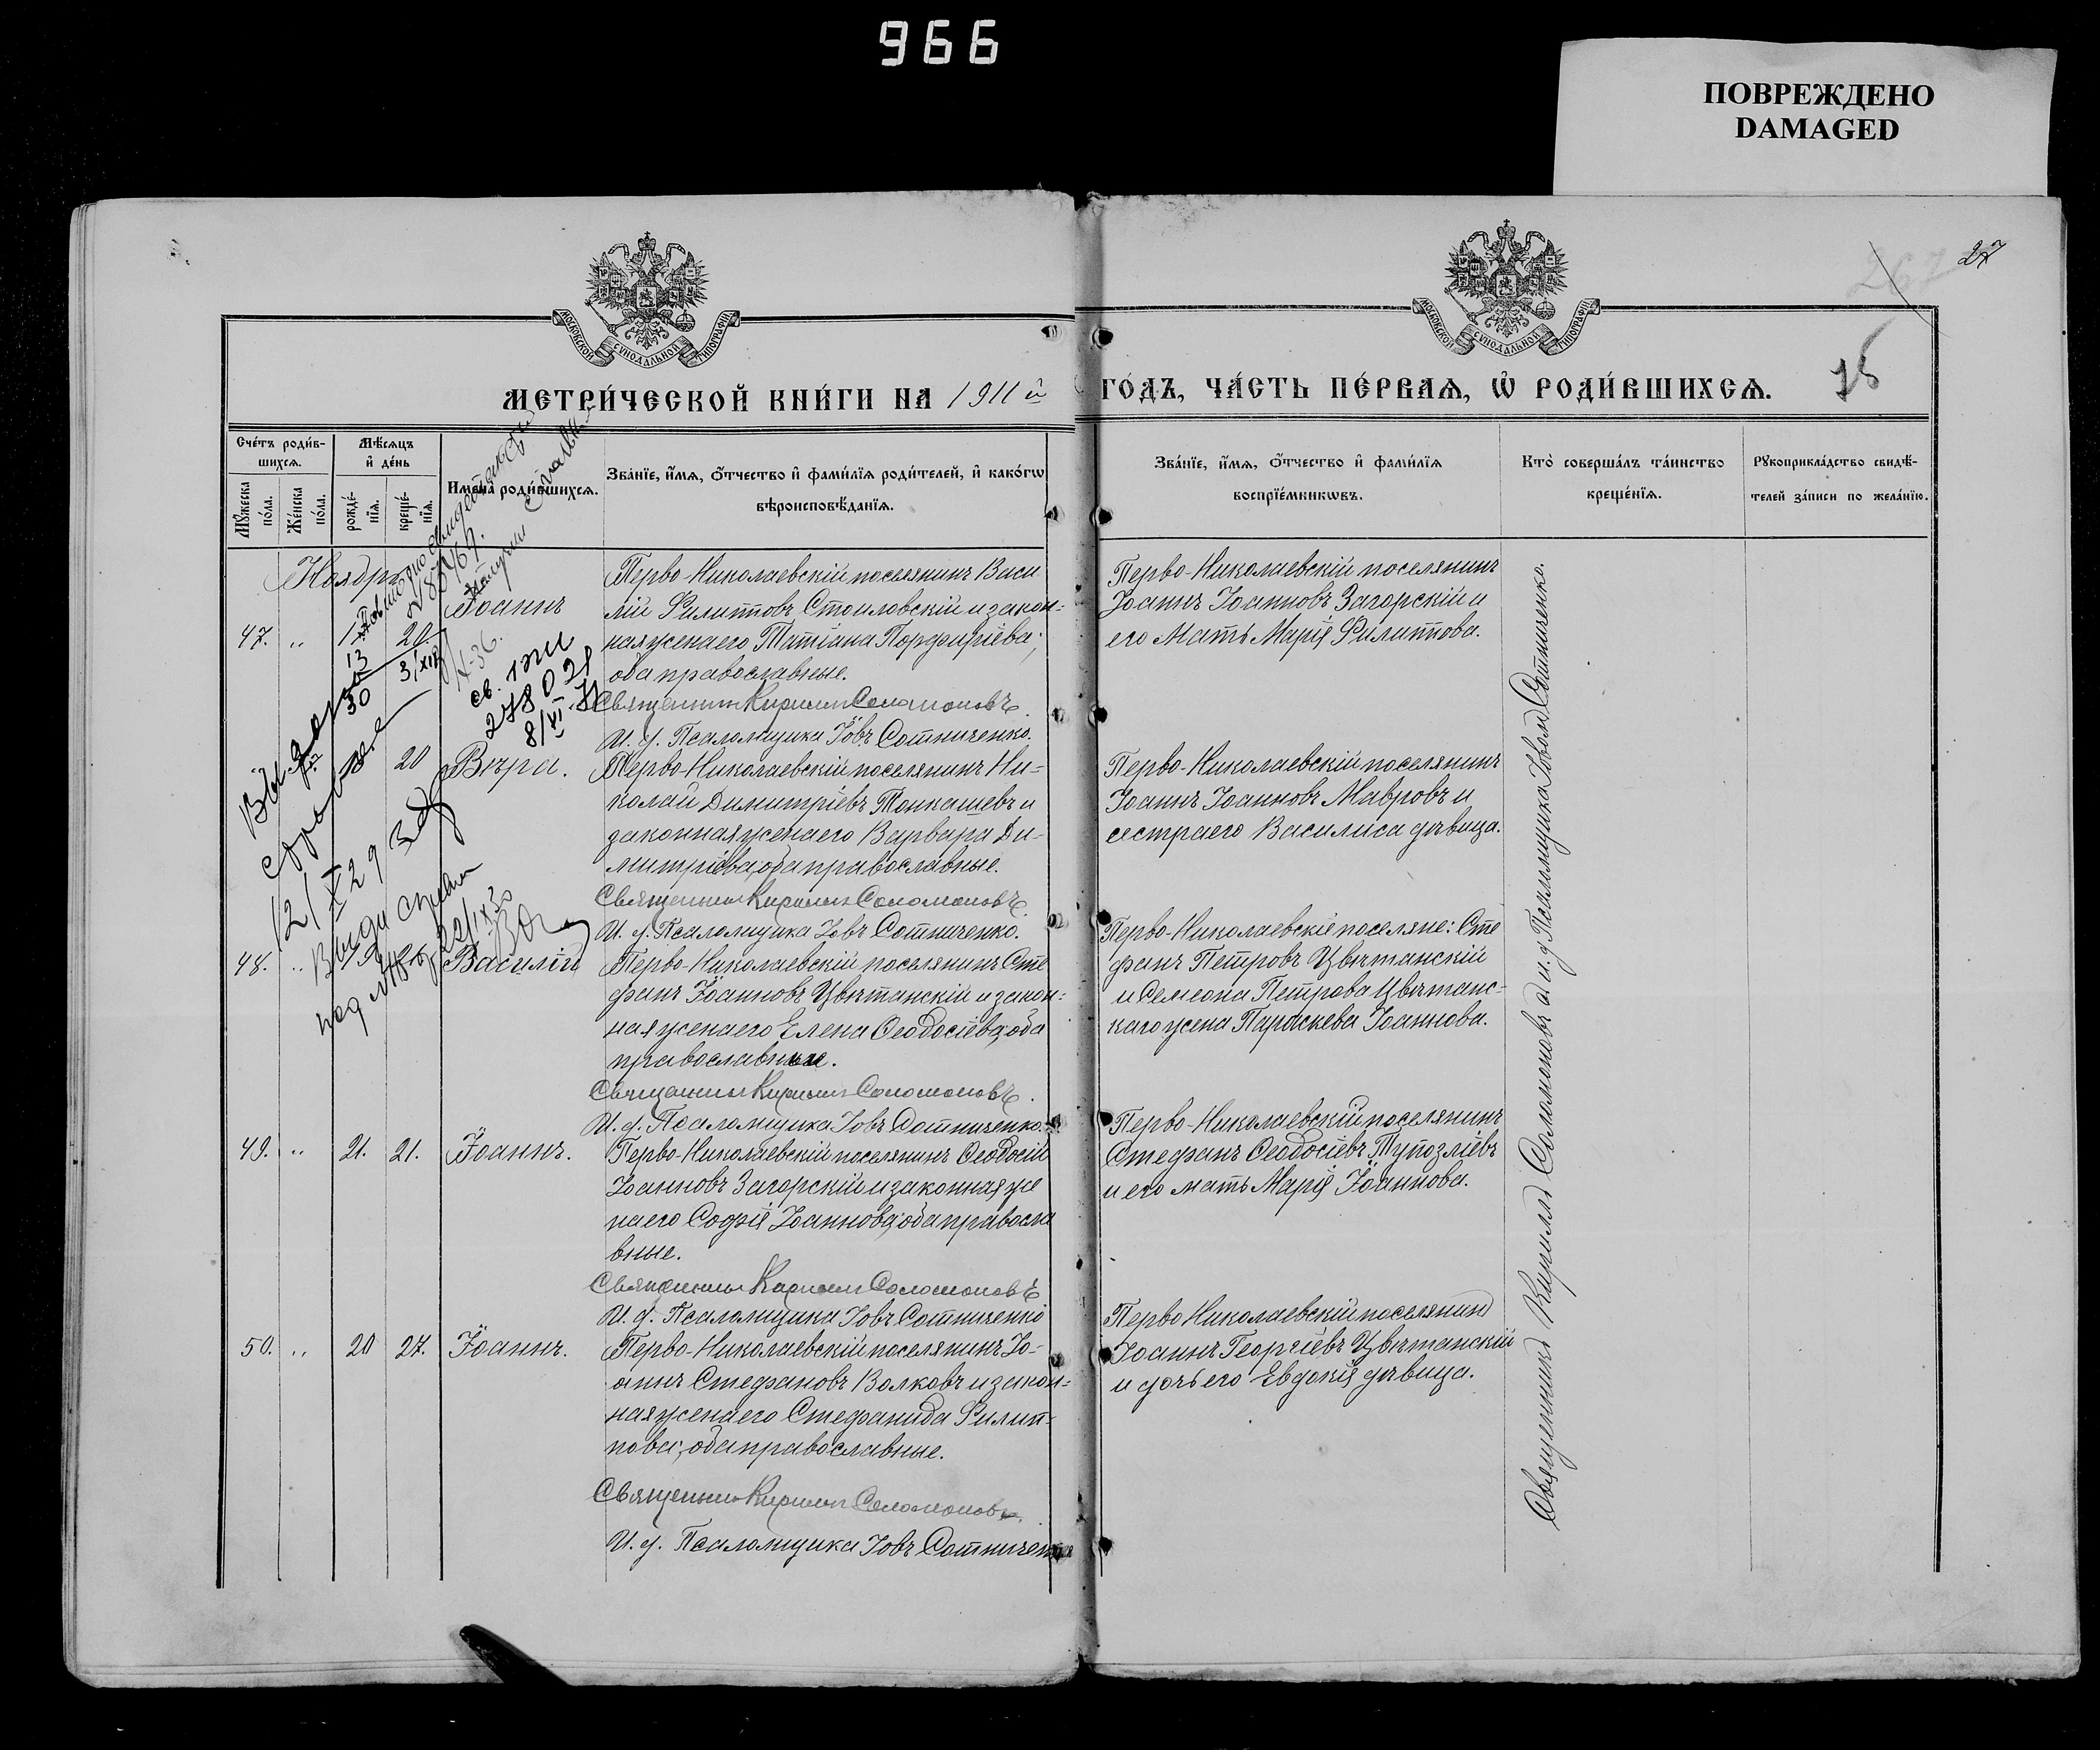 966
ПОВРЕЖДЕНО
DAMAGED
27
МОСКОВСКОЙ СУНОДАЛЬНОЙ ТИПОГРАФІИ
МОСКОВСКОЙ СУНОДАЛЬНОЙ ТИПОГРАФІИ
МЕТРИ́ЧЕСКОЙ КНИ́ГИ НА 1911й ГО́ДЪ, ЧА́СТЬ ПЕ́РВАѦ, Ѡ҆ РОДИ́ВШИХСѦ.
Сче́тъ роди́в-
шихсѧ.
Мꙋ́жеска по́ла.
Же́нска по́ла.
Мѣ́сѧцъ
и҆ де́нь
рожде́-
нїѧ.
креще́-
нїѧ.
Имена̀ роди́вшихсѧ.
Зва́нїе, и҆́мѧ, ѻ҆́тчество и҆ фами́лїѧ роди́телей, и҆ како́гѡ
вѣроисповѣ́данїѧ.
Зва́нїе, и҆́мѧ, ѻ҆́тчество и҆ фами́лїѧ
воспрїе́мникѡвъ.
Кто̀ соверша́лъ та́инство
креще́нїѧ.
Рꙋкоприкла́дство свидѣ́-
телей за́писи по жела́нїю.
Ноября
47. " 20 Іоаннъ
Перво-Николаевскій поселянинъ Васи
лій Филипповъ Стоиловскій и закон=
ная жена его Татіана Порфиріева;
оба православные.
Священникъ Кириллъ Соломоновъ.
И. д. Псаломщика Іовъ Сотниченко.
Перво-Николаевскій поселянинъ
Іоаннъ Іоанновъ Загорскій и
его мать Марія Филиппова.
св. тми
278021
20 Вѣра.
Перво-Николаевскій поселянинъ Ни=
колай Димитріевъ Тонкашевъ и
законная жена его Варвара Ди-
митріева, оба православные.
Священникъ Кириллъ Соломоновъ.
И. д. Псаломщика Іовъ Сотниченко.
Перво-Николаевскій поселянинъ
Іоаннъ Іоанновъ Мавровъ и
сестра его Василиса дѣвица.
48. " Василій
Перво-Николаевскій поселянинъ Сте
фанъ Іоанновъ Цвѣтанскій и закон=
ная жена его Елена Ѳеодосіева, оба
православные.
Священникъ Кириллъ Соломоновъ.
И. д. Псаломщика Іовъ Сотниченко.
Перво-Николаевскіе поселяне: Сте
фанъ Петровъ Цвѣтанскій
и Семеона Петрова Цвѣтанс-
каго жена Параскева Іоаннова.
49. " 21. 21. Іоаннъ.
Перво-Николаевскій поселянинъ Ѳеодосій
Іоанновъ Загорскій и законная же
на его Софія Іоаннова, оба правосла
вные.
Священникъ Кириллъ Соломоновъ
И. д. Псаломщика Іовъ Сотниченко
Перво-Николаевскій поселянинъ
Стефанъ Ѳеодосіевъ Тупозліевъ
и его мать Марія Іоаннова.
50. " 20 27. Іоаннъ.
Перво-Николаевскій поселянинъ Іо-
аннъ Стефановъ Волковъ и закон=
ная жена его Стефанида Филип-
пова; оба православные.
Священникъ Кириллъ Соломоновъ.
И. д. Псаломщика Іовъ Сотниченко
Перво Николаевскій поселянинъ
Іоаннъ Георгіевъ Цвѣтанскій
и дочь его Евдокія дѣвица.
Священникъ Кириллъ Соломоновъ и. д. Псаломщика Іовъ Сотниченко.